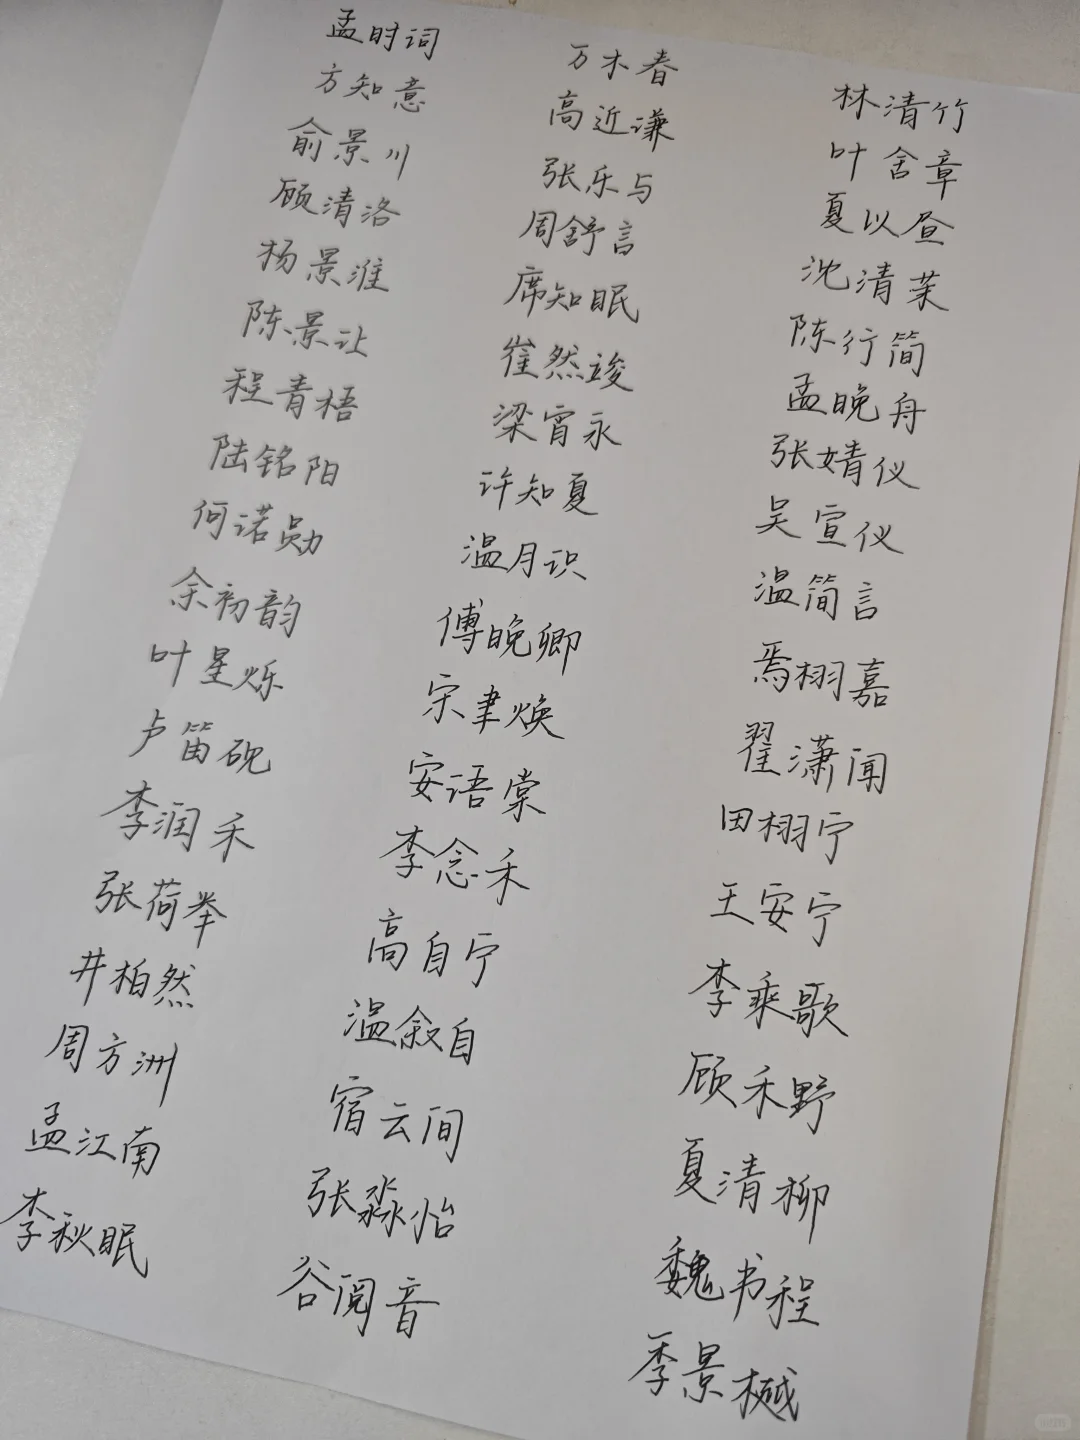 孟时词
方知意
俞景川
顾清洛
杨景淮
陈景让
程青梧
陆铭阳
何诺勋
余初韵
叶星烁
卢笛砚
李润禾
张荷举
井柏然
周方洲
孟江南
李秋眠
万木春
高近谦
张乐与
周舒言
席知眠
崔然竣
梁宵永
许知夏
温月识
傅晚卿
宋聿焕
安语棠
李念禾
高自宁
温叙自
宿云间
张淼怡
谷阅音
林清竹
叶舍章
夏以昼
沈清茉
陈行简
孟晚舟
张婧仪
吴宣仪
温简言
焉栩嘉
翟潇闻
田栩宁
王安宁
李乘歌
顾禾野
夏清柳
魏书程
季景樾